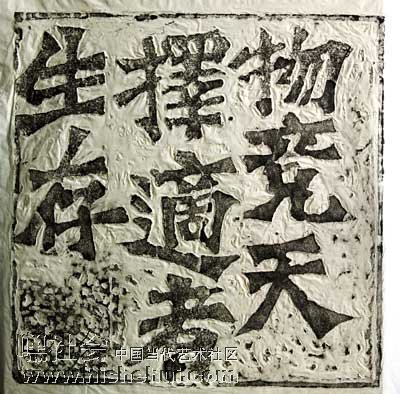 物竞天
擇適者
生存
嗨社会 中国当代艺术社区
www.hishehui.com